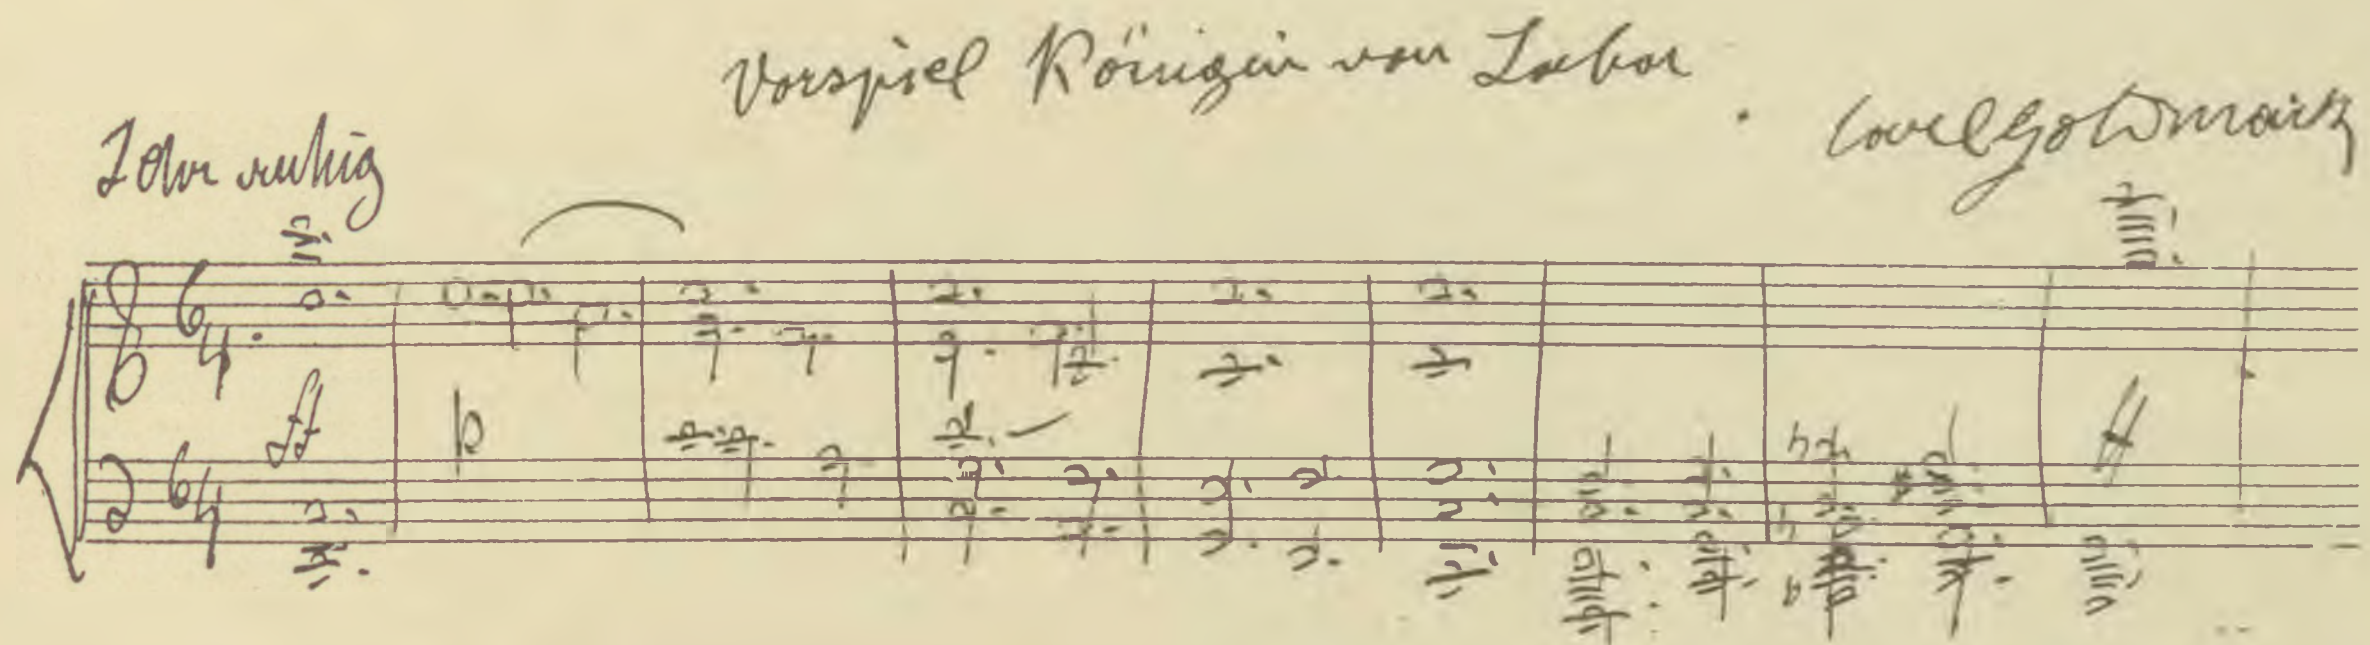 Vorspiel Königin von Saba.
Carl Goldmark
Sehr ruhig
6/4
ff p ff
6/4